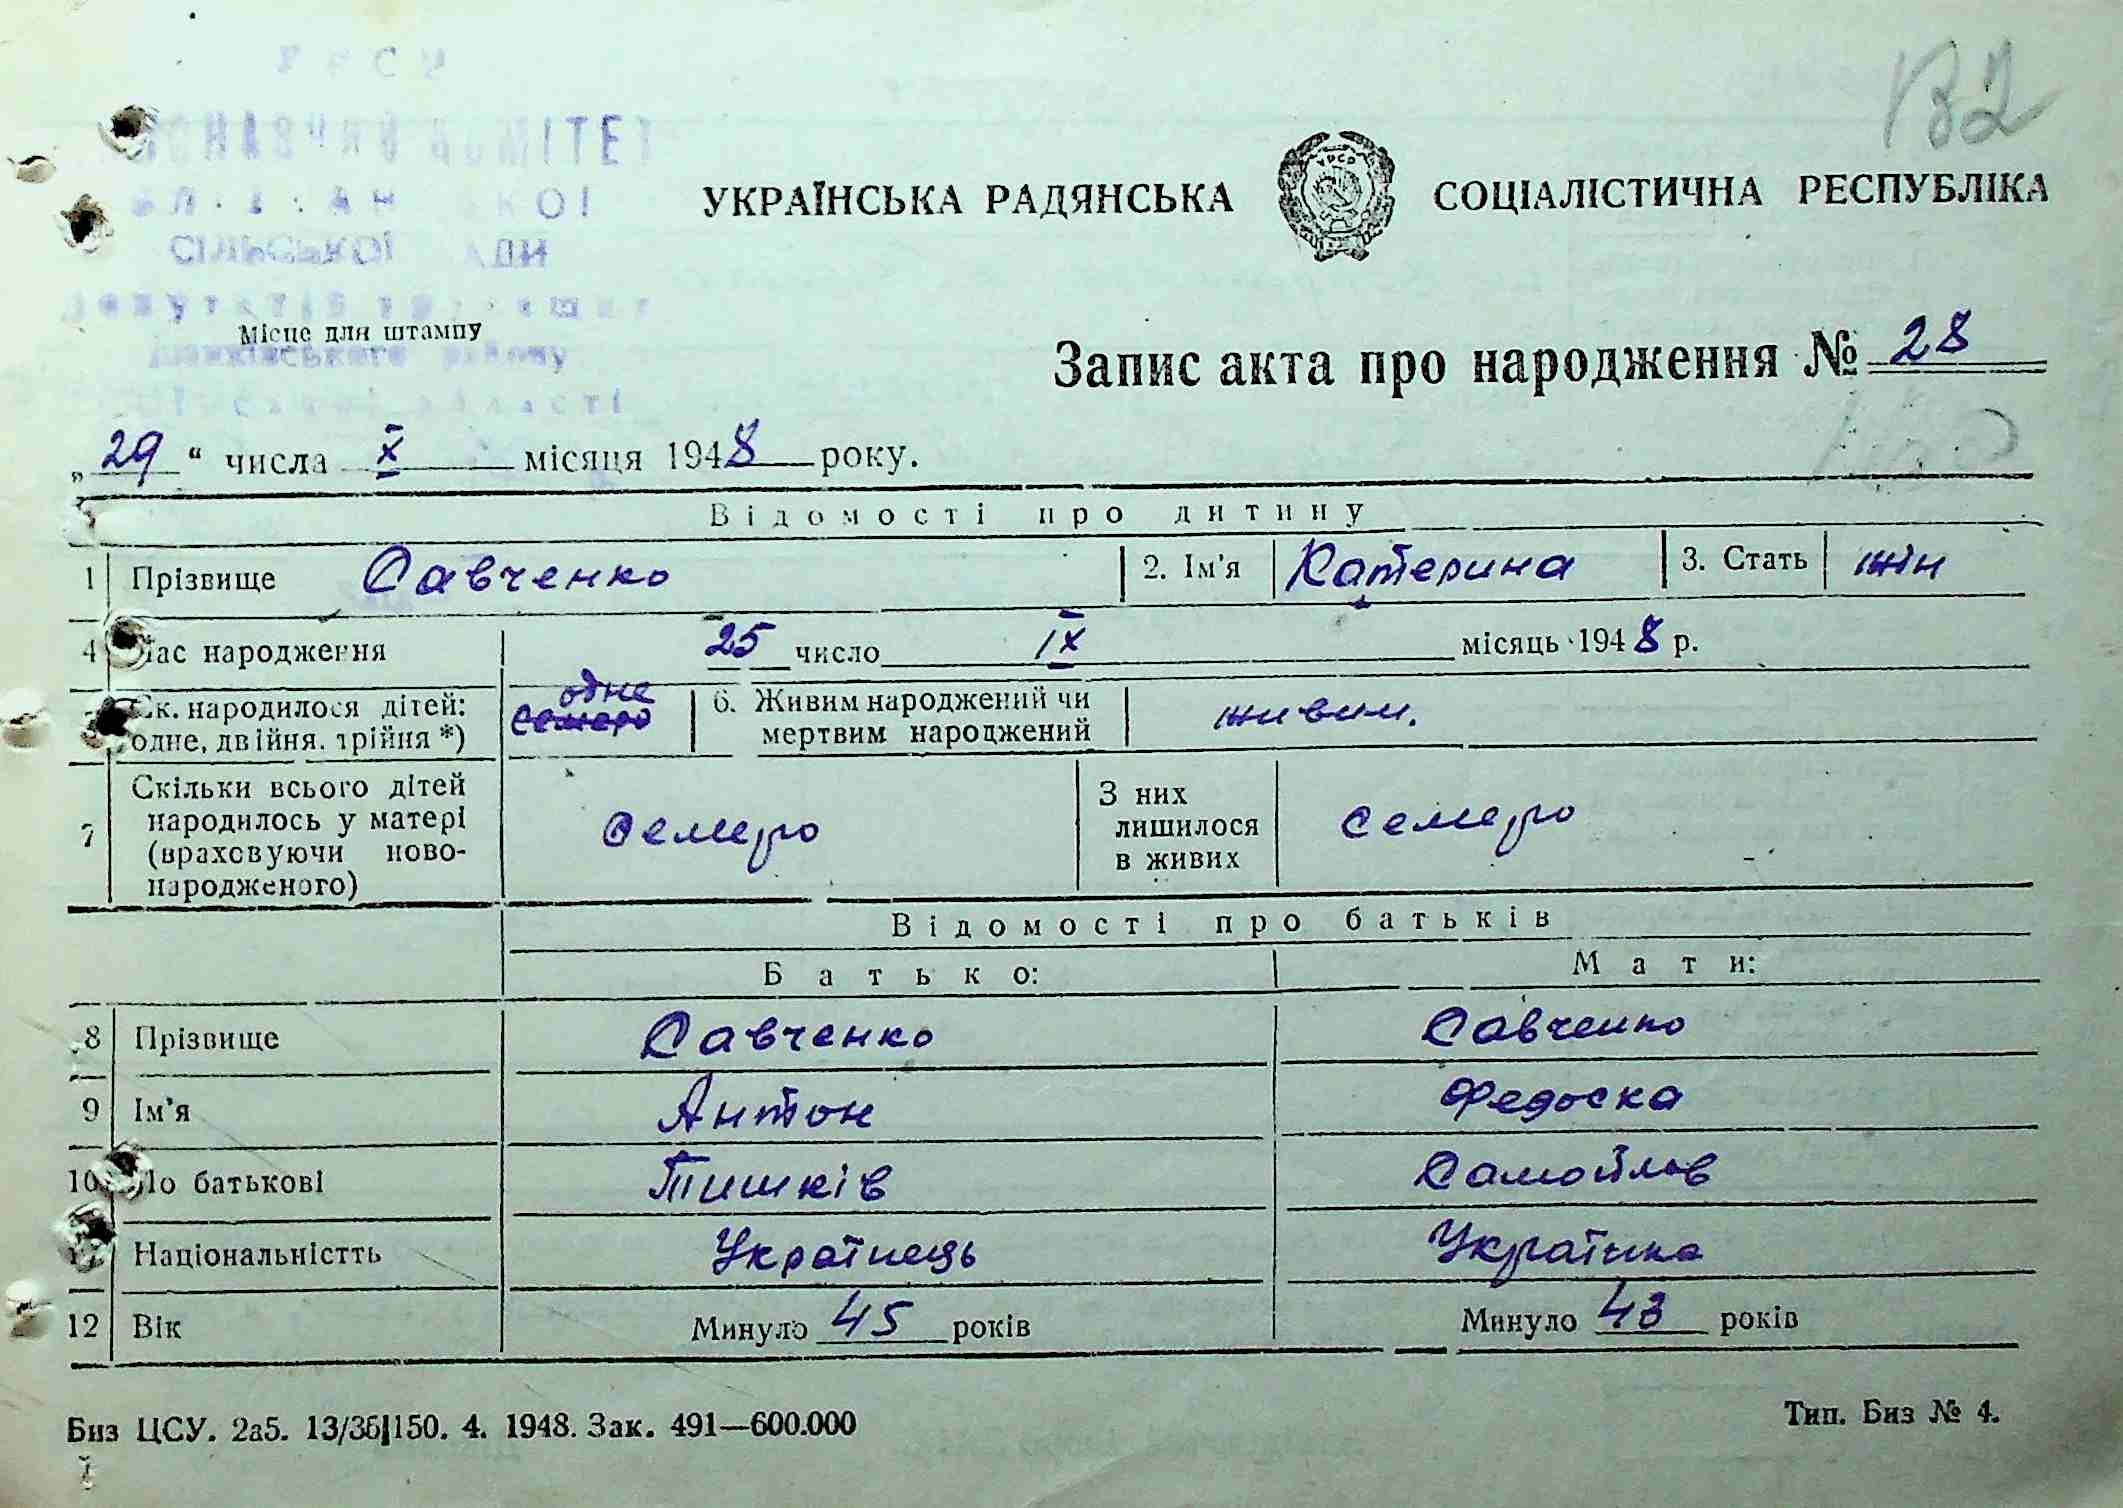 УРСР
КОМІТЕТ
СІЛЬСЬКОЇ РАДИ
Місце для штампу
району
області
132
УКРАЇНСЬКА РАДЯНСЬКА СОЦІАЛІСТИЧНА РЕСПУБЛІКА
Запис акта про народження № 28
„29“ числа IX місяця 1948 року.
Відомості про дитину
1 Прізвище Савченко 2. Ім'я Катерина 3. Стать жін
4 Час народження 25 число IX місяць 1948 р.
одне
Ск. народилося дітей: семеро 6. Живим народжений чи живим.
одне, двійня, трійня *) мертвим народжений
7 Скільки всього дітей народилось у матері (враховуючи ново-народженого) семеро З них лишилося в живих семеро
Відомості про батьків
Батько: Мати:
8 Прізвище Савченко Савченко
9 Ім'я Антон Федоска
10 По батькові Тишків Самойлов
Національністть Українець Українка
12 Вік Минуло 45 років Минуло 43 років
Биз ЦСУ. 2а5. 13/36|150. 4. 1948. Зак. 491—600.000 Тип. Биз № 4.